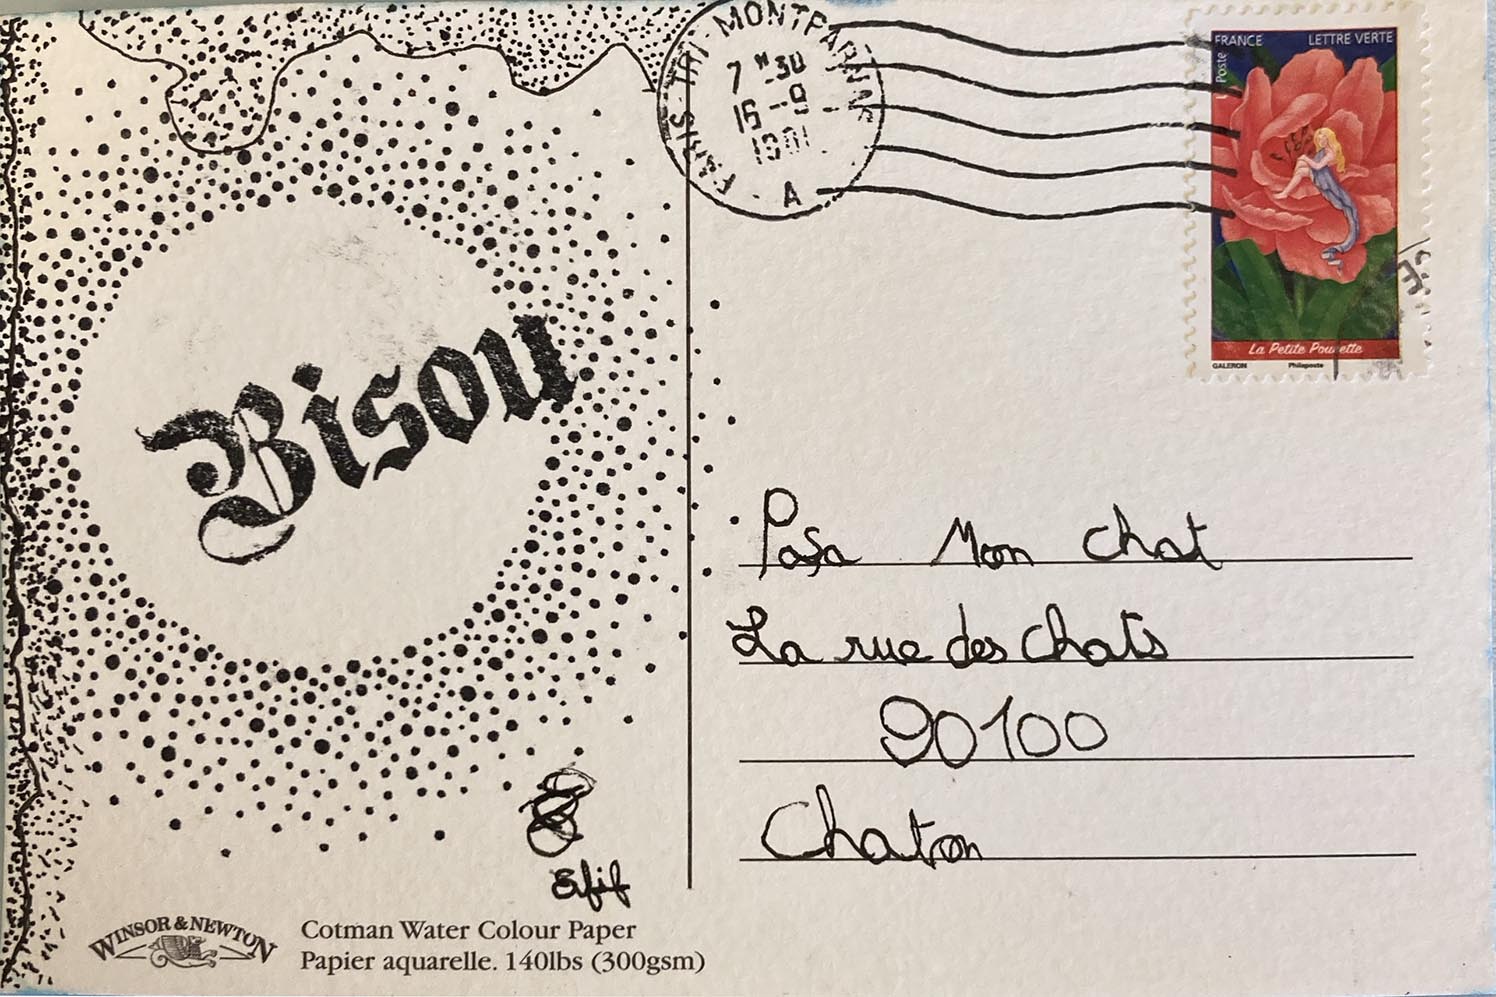 PARIS TRI MONTPARNASSE
7 H 30
16 - 9
1991
A
FRANCE LETTRE VERTE
La Poste
La Petite Poucette
GALERON Philaposte
Bisou
Pasa Mon chat
La rue des Chats
90100
Chaton
Efif
WINSOR & NEWTON
Cotman Water Colour Paper
Papier aquarelle. 140lbs (300gsm)